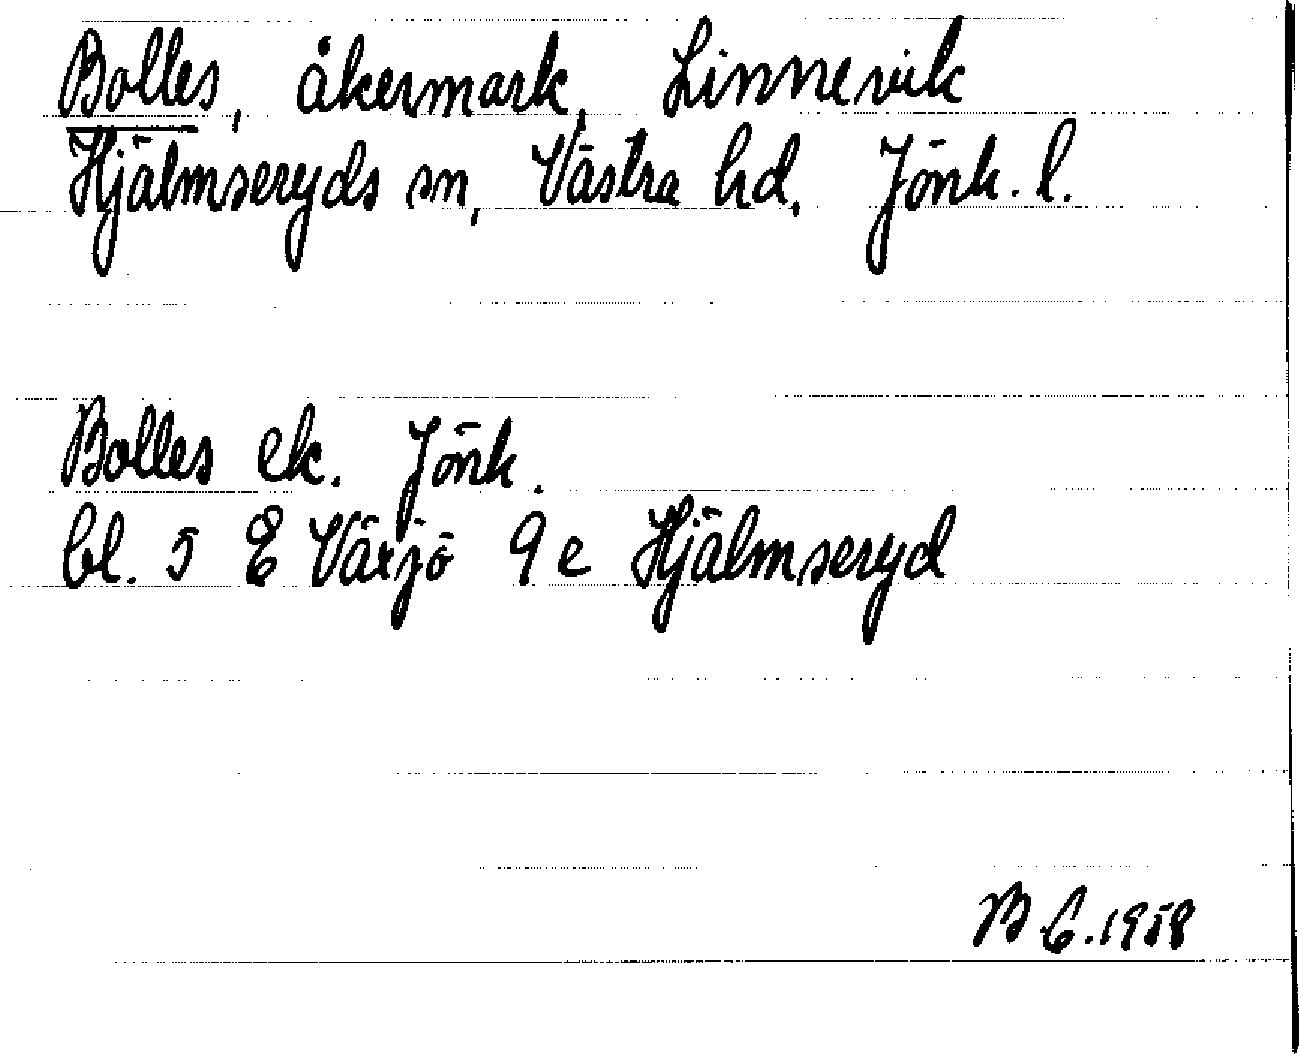 Bolles, åkermark, Linnevik
Hjälmseryds sn, Västra hd, Jönk. l.
Bolles ek. Jönk.
bl. 5 E Växjö 9 e Hjälmseryd
B.E. 1958